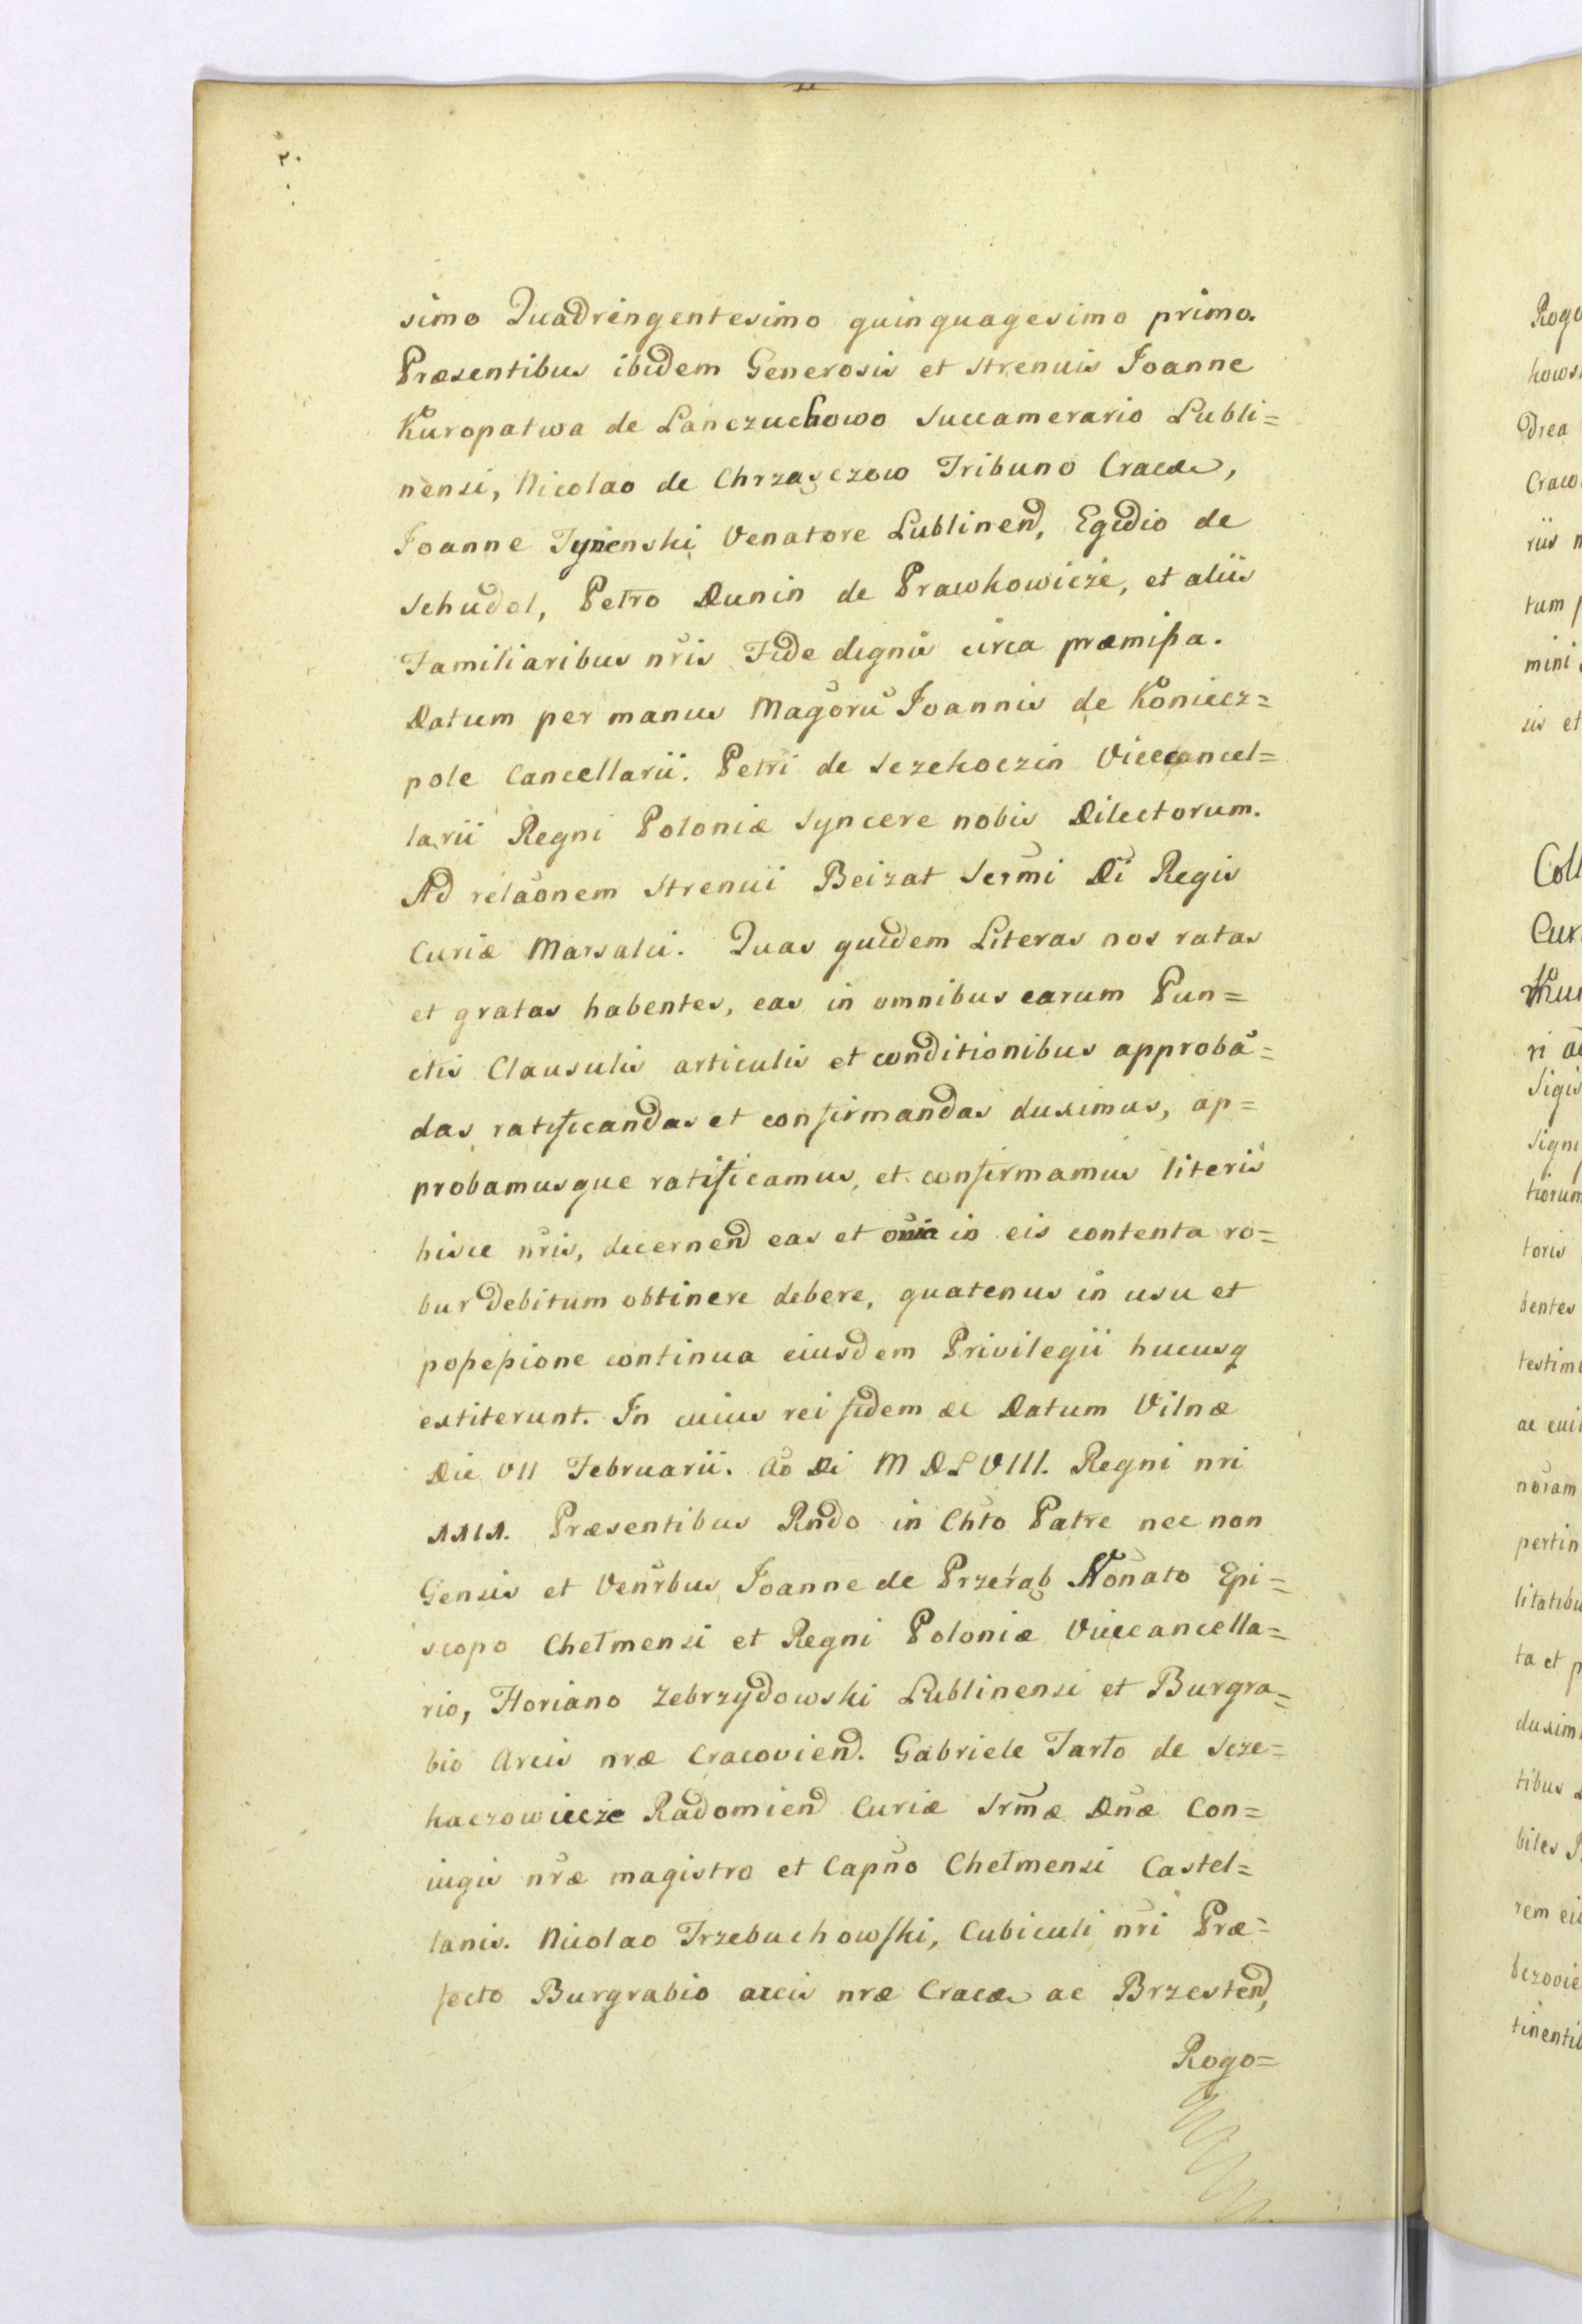 simo Quadringentesimo quinquagesimo primo.
Præsentibus ibidem Generosis et strenuis Joanne
Kuropatwa de Lanczuchowo Succamerario Lubli=
nensi, Nicolao de Chrząsczow Tribuno
Joanne Venatore Lublinend, Egidio de
Schudol, Petro Dunin de Prawkowicze, et aliis
Familiaribus nris Fide dignis circa præmißa.
Datum per manus Magoru Joannis de Koniecz=
pole Cancellarii. Petri de Sczekoczin Vicecancel=
larii Regni Poloniæ Syncere nobis Dilectorum.
Ad relaonem strenui Beizat Sermi Di Regis
Curiæ Marsalci. Quas quidem Literas nos ratas
et gratas habentes, eas in omnibus earum Pun=
ctis Clausulis articulis et conditionibus approba=
das ratificandas et confirmandas duximus, ap=
probamusque ratificamus, et confirmamus literis
hisce nris, decernend eas et in eis contenta ro=
bur debitum obtinere debere, quatenus in usu et
poßeßione continua eiusdem Privilegii hucusq
extiterunt. In cuius rei fidem &c Datum Vilnæ
Die VII Februarii. Ao Di M D L VIII. Regni nri
XXIX. Præsentibus Rndo in Chto Patre nec non
Gensis et Venrbus Joanne de Przeręb Nonato Epi=
scopo Chełmensi et Regni Poloniæ Vicecancella=
rio, Floriano Zebrzydowski Lublinensi et Burgra=
bio Arcis nræ Cracoviend. Gabriele Tarło de Scze=
kaczowicze Radomiend Curiæ Srmæ Dnæ Con=
iugis nræ magistro et Capno Chełmensi Castel=
lanis. Nicolao Trzebuchowski, Cubiculi nri Præ=
fecto Burgrabio arcis nræ ac Brzestend,
Rogo=
Rogo
hows
Drea
Craw
riis
tum
mini
sis et
Coll
Cur
ri
Sigis
Signi
tiorum
toris
bentes
testim
ac
noram
pertin
litatibu
ta et p
duxim
tibus
biles
rem
tinentib